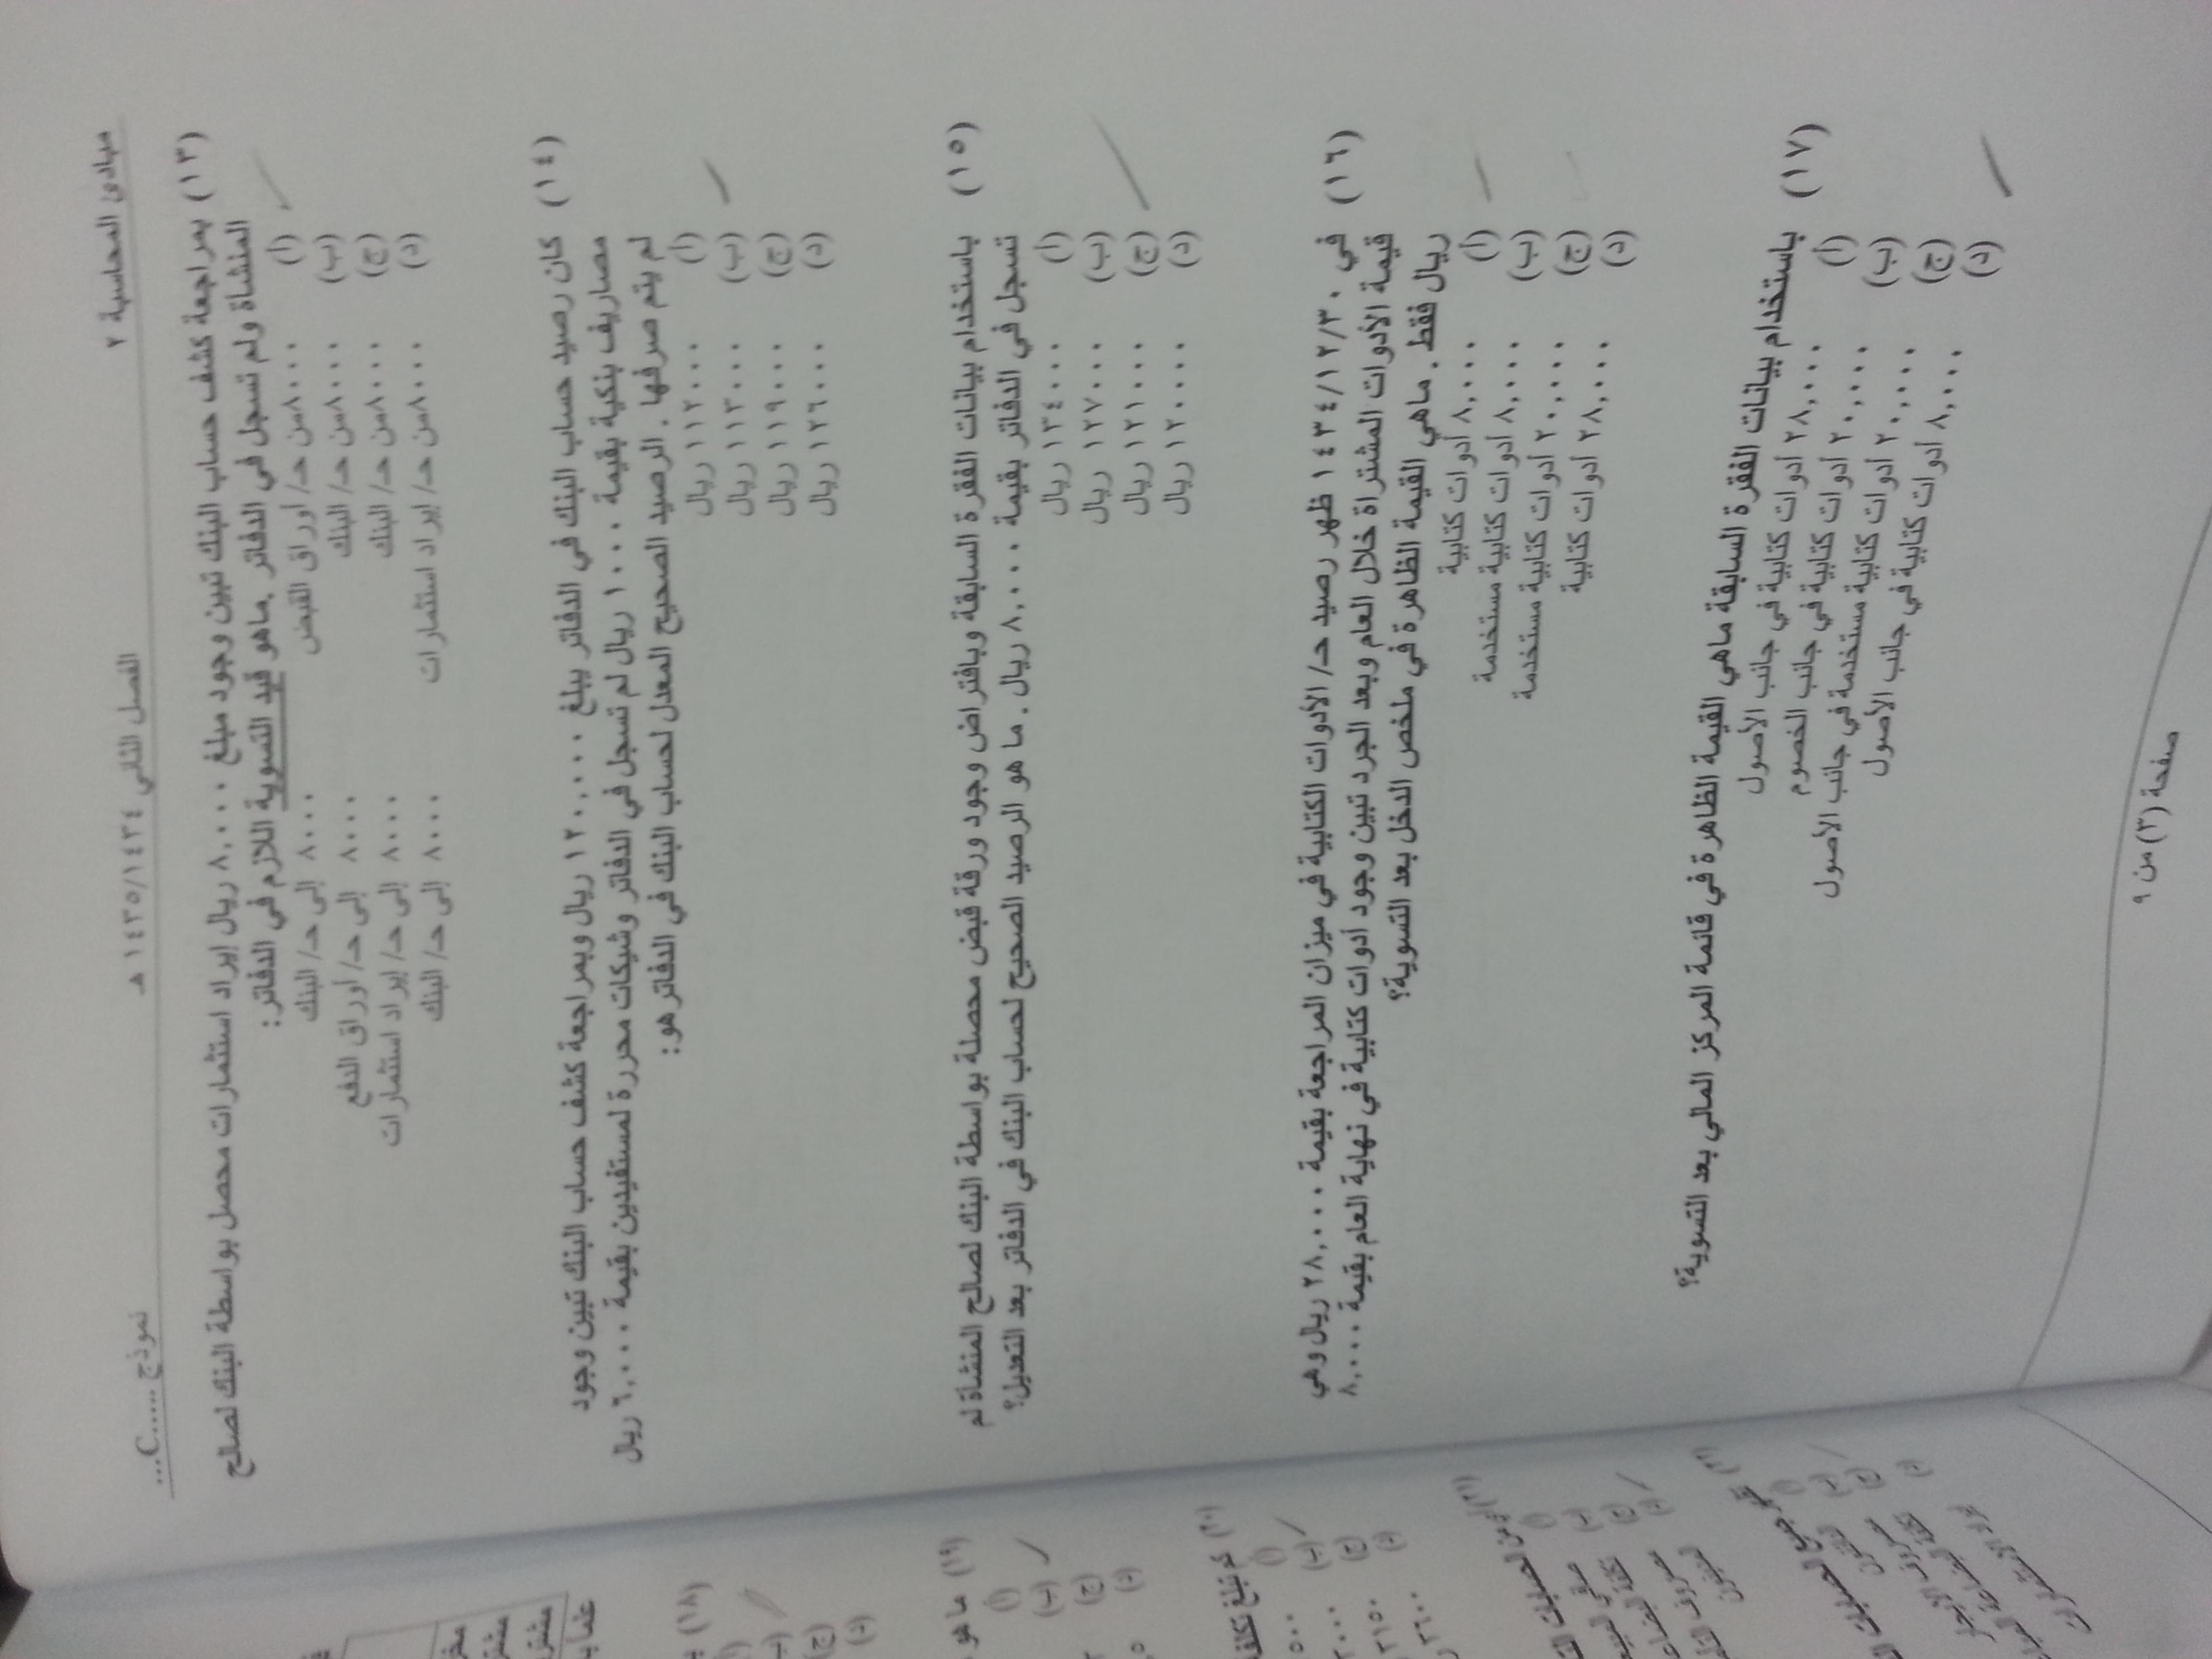 مبادئ المحاسبة ٢ الفصل الثاني ١٤٣٥/١٤٣٤ هـ نموذج .....C...
(١٣) بمراجعة كشف حساب البنك تبين وجود مبلغ ٨,٠٠٠ ريال إيراد استثمارات محصل بواسطة البنك لصالح
المنشأة ولم تسجل في الدفاتر .ماهو قيد التسوية اللازم في الدفاتر:
(أ) ٨٠٠٠من حـ/ أوراق القبض ٨٠٠٠ إلى حـ/ البنك
(ب) ٨٠٠٠من حـ/ البنك ٨٠٠٠ إلى حـ/ أوراق الدفع
(ج) ٨٠٠٠من حـ/ البنك ٨٠٠٠ إلى حـ/ إيراد استثمارات
(د) ٨٠٠٠من حـ/ إيراد استثمارات ٨٠٠٠ إلى حـ/ البنك
(١٤) كان رصيد حساب البنك في الدفاتر يبلغ ١٢٠,٠٠٠ ريال وبمراجعة كشف حساب البنك تبين وجود
مصاريف بنكية بقيمة ١٠٠٠ ريال لم تسجل في الدفاتر وشيكات محررة لمستفيدين بقيمة ٦,٠٠٠ ريال
لم يتم صرفها . الرصيد الصحيح المعدل لحساب البنك في الدفاتر هو:
(أ) ١١٢٠٠٠ ريال
(ب) ١١٣٠٠٠ ريال
(ج) ١١٩٠٠٠ ريال
(د) ١٢٦٠٠٠ ريال
(١٥) باستخدام بيانات الفقرة السابقة وبافتراض وجود ورقة قبض محصلة بواسطة البنك لصالح المنشاة لم
تسجل في الدفاتر بقيمة ٨,٠٠٠ ريال . ما هو الرصيد الصحيح لحساب البنك في الدفاتر بعد التعديل؟
(أ) ١٣٤٠٠٠ ريال
(ب) ١٢٧٠٠٠ ريال
(ج) ١٢١٠٠٠ ريال
(د) ١٢٠٠٠٠ ريال
(١٦) في ١٤٣٤/١٢/٣٠ ظهر رصيد حـ/ الأدوات الكتابية في ميزان المراجعة بقيمة ٢٨,٠٠٠ ريال وهي
قيمة الأدوات المشتراة خلال العام وبعد الجرد تبين وجود أدوات كتابية في نهاية العام بقيمة ٨,٠٠٠
ريال فقط . ماهي القيمة الظاهرة في ملخص الدخل بعد التسوية؟
(أ) ٨,٠٠٠ أدوات كتابية
(ب) ٨,٠٠٠ أدوات كتابية مستخدمة
(ج) ٢٠,٠٠٠ أدوات كتابية مستخدمة
(د) ٢٨,٠٠٠ أدوات كتابية
(١٧) باستخدام بيانات الفقرة السابقة ماهي القيمة الظاهرة في قائمة المركز المالي بعد التسوية؟
(أ) ٢٨,٠٠٠ أدوات كتابية في جانب الأصول
(ب) ٢٠,٠٠٠ أدوات كتابية في جانب الخصوم
(ج) ٢٠,٠٠٠ أدوات كتابية مستخدمة في جانب الأصول
(د) ٨,٠٠٠ أدوات كتابية في جانب الأصول
صفحة (٣) من ٩
(١٨)
(ج)
(د)
(١٩) ما هو
(أ)
(ب)
(ج)
(د)
(٢٠) كم تبلغ تكلفة
(أ)
(ب)
(ج)
(د)